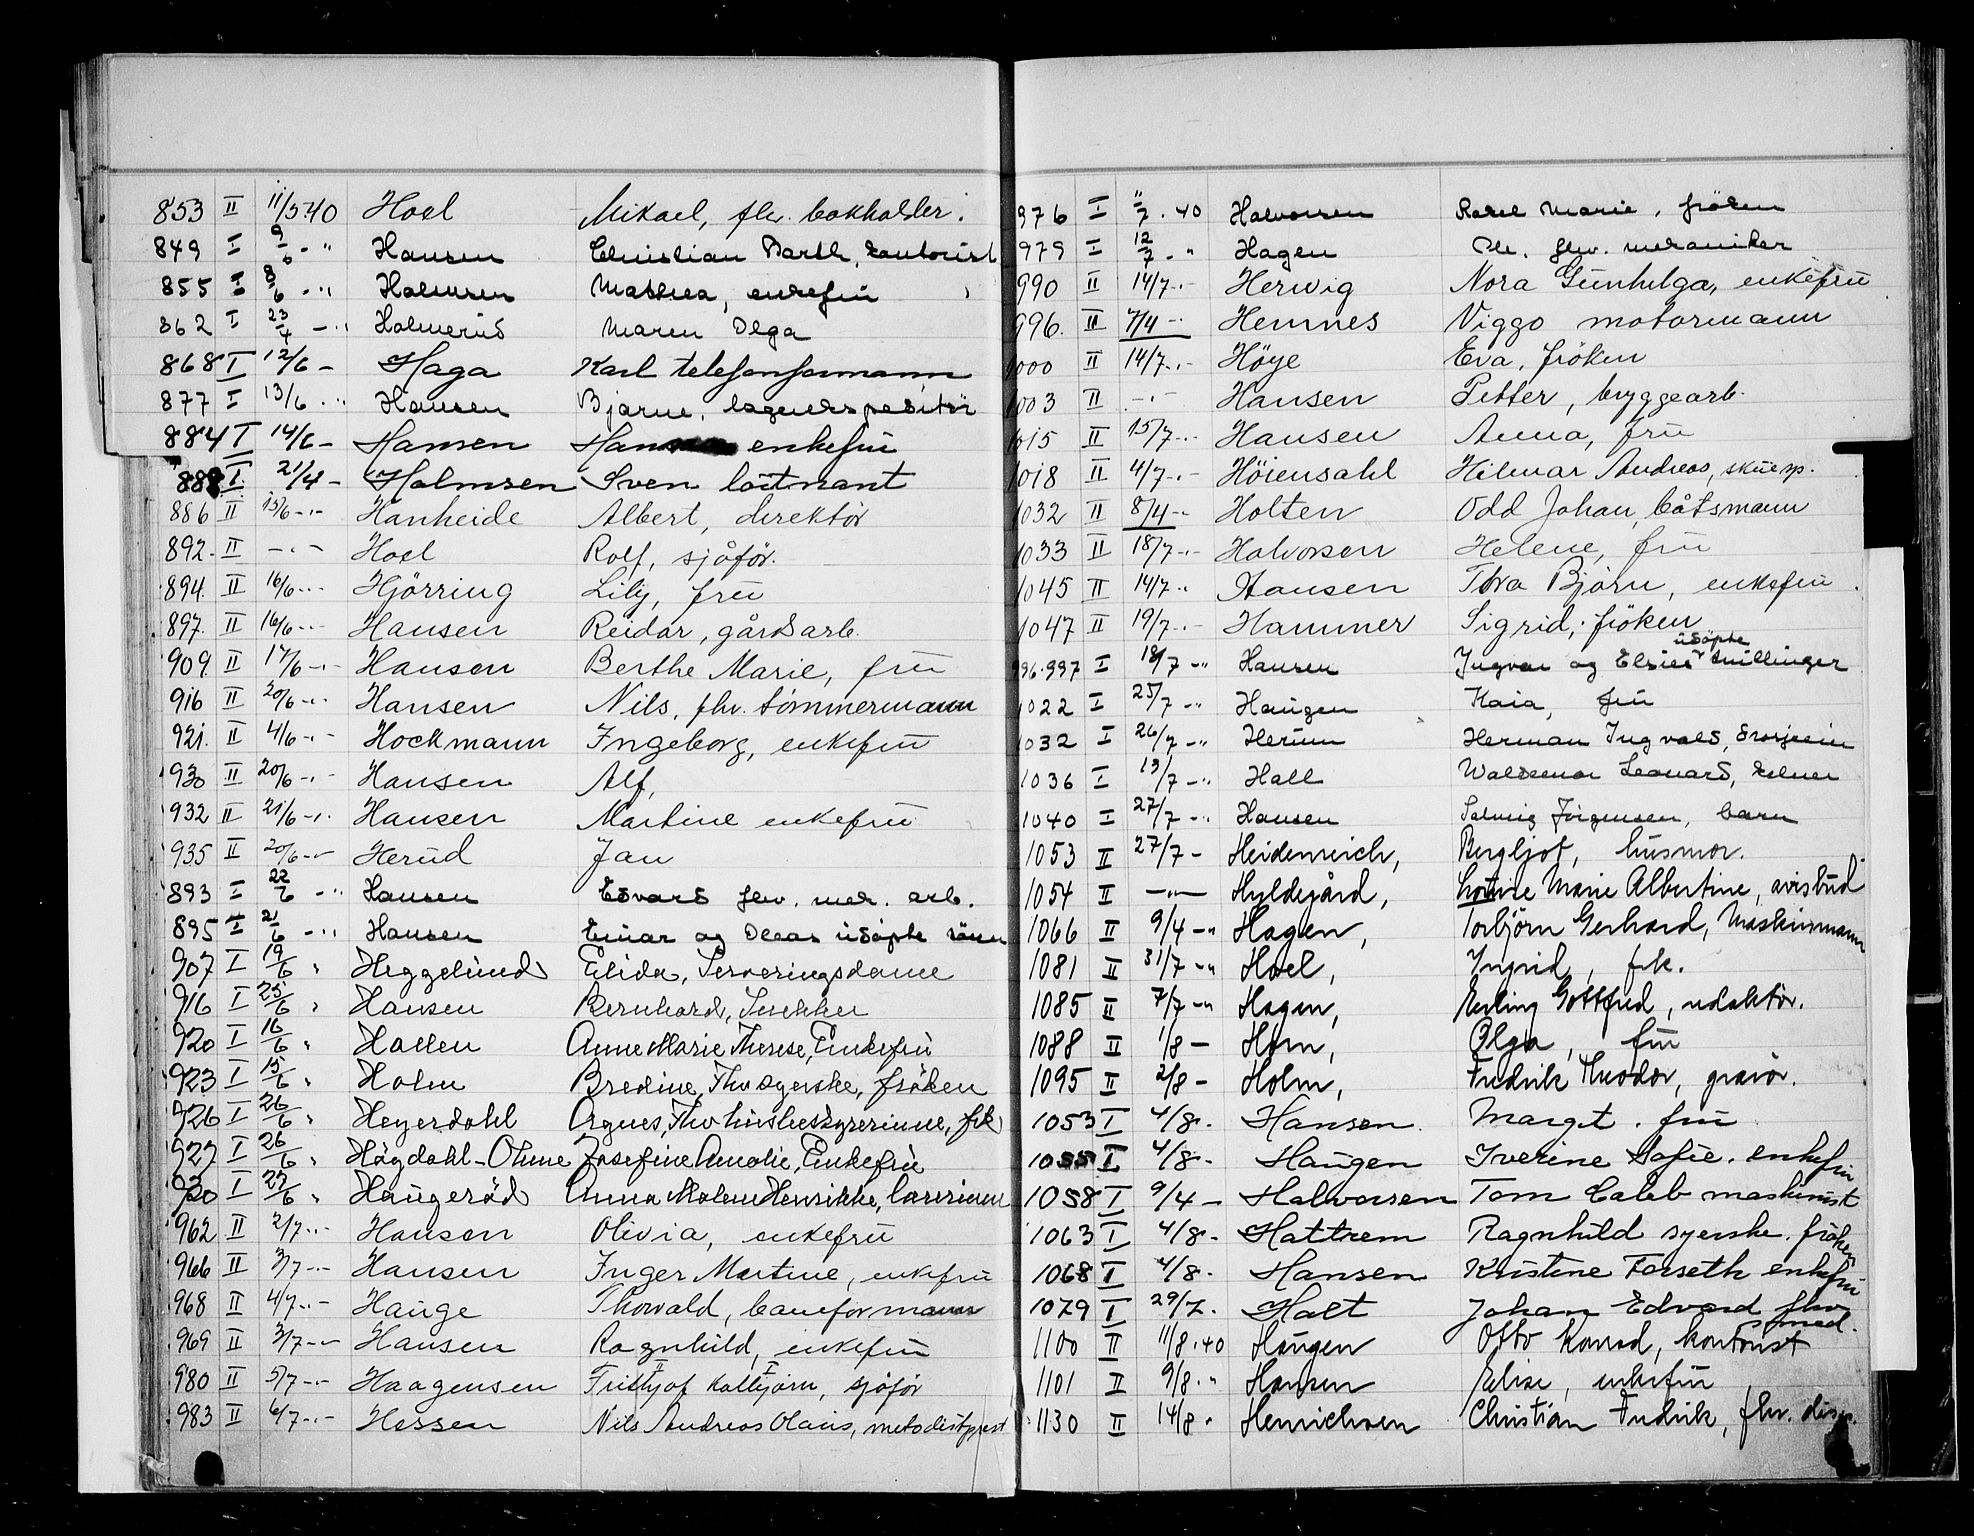 853 II 11/5.40 Hoel Mikael, fhv. bokholder.
849 I 9/6 - " Hansen Christian Barth, kontorist
855 I 8/6 - " Holmsen Mathea, enkefru
862 I 23/4 - " Holmerud Maren Olga
868 I 12/6 - Haga Karl telefonformann
877 I 13/6 - " Hansen Bjarne, lagerekspeditör
884 I 14/6 - Hansen enkefru
I 21/4 - Holmsen Sven löitnant
886 II 15/6 - " - Hanheide Albert, direktör
892. II - " - Hoel Rolf, sjåför.
894. II 16/6 - " - Hjörring Lily, fru
897. II 16/6 - " - Hansen Reidar, gårdsarb.
909. II 17/6 - " - Hansen Berthe Marie, fru
916 II 20/6 - " - Hansen Nils, fhv. tömmermann
921. II 4/6 - " - Hockmann Ingeborg, enkefru
930 II 20/6 - " - Hansen Alf,
932 II 21/6 - " - Hansen Martine enkefru
935 II 20/6 - " - Herud Jan
893 I 22/6 - " Hansen Edvard fhv. mek. arb.
895 I 21/6 - " Hansen Einar og udöpte sönn
907 I 19/6 " Heggelund Elida, Serveringsdame
916 I 25/6 " Hansen Bernhard,
920 I 16/6 " Hallen Anne Marie Therese, Enkefru
923 I 15/6 " Holm Bredine, Fhv syerske, fröken
926 I 26/6 " Heyerdahl Agnes, Fhv husbestyrerinne, frk
927 I 26/6 " Högdahl-Ohme Josefine Amalie, Enkefru
930 I 27/6 " Haugeröd Anna Malene Henrikke,
962 II 2/7 - " - Hansen Olivia, enkefru
966 II 3/7 - " - Hansen Inger Martine, enkefru
968 II 4/7 - " - Hauge Thorvald, baneformann
969 II 3/7 - " - Hansen Ragnhild, enkefru
980 II 5/7 - " - Haagensen Frithjof Kolbjörn, sjåför
983 II 6/7 - " - Hessen Nils Andreas Olaus, metodistprest
976 I 11/7 . 40 Halvorsen Rakel Marie, fröken
979 I 12/7 - " Hagen Ole. fhv. mekaniker
990 II 14/7 - " - Herwig Nora Gunhelga, enkefru
996. II 7/4 - " - Hemnes Viggo motormann
1000 II 14/7 - " - Höye Eva, fröken
1003 II - " - Hansen Petter, bryggearb.
1015 II 15/7 - " - Hansen Anna, fru
1018 II 4/7 - " - Höiensahl Hilmar Andreas, skuesp.
1032 II 8/4 - " - Holten Odd Johan, båtsmann
1033 II 18/7 - " - Halvorsen Helene, fru
1045 II 14/7 - " Hansen Tora Björn, enkefru
1047 II 19/7 - " - Hammer Sigrid, fröken
udöpte
996-997 I 18/7 - " Hansen Ingvar og Elsies tvillinger
1022 I 25/7 - " Haugen Kaia, fru
1032 I 26/7 - " Herum Herman Ingvald,
1036 I 13/7 - " Hall Waldemar Leonard, kelner
1040 I 27/7 - " Hansen Solveig Jörgensen, barn
1053 II 27/7 - Heidenreich, Bergljot, husmor.
1054 II - " - Hyldegård, Marie Albertine, avisbud
1066 II 9/4 - " Hagen, Torbjörn Gerhard, Maskinmann
1081 II 31/7 - " Hoel, Ingrid, frk.
1085 II 7/7 - " Hagen, Erling Gottfred, redaktör.
1088 II 1/8 - Horn, Olga, fru
1095 II 2/8 - Holm, Fredrik Theodor, gravör.
1053 I 4/8 - Hansen. Margit. fru
1055 I 4/8 - Haugen Iverine Sofie. enkefru
1058 I 9/4 - Halvorsen Tom Caleb maskinist
1063 I 4/8 - Hattrem Ragnhild syerske. fröken
1068 I 4/8 - Hansen Kristine Forseth enkefru
1079 I 29/7. Halt Johan Edvard fhv
smed.
1100 II 11/8.40 Haugen Otto Konrad, kontorist
1101 II 9/8 . " Hansen Elise, enkefru
1130 II 14/8 " Henrichsen Christian Fredrik, fhv. disp.